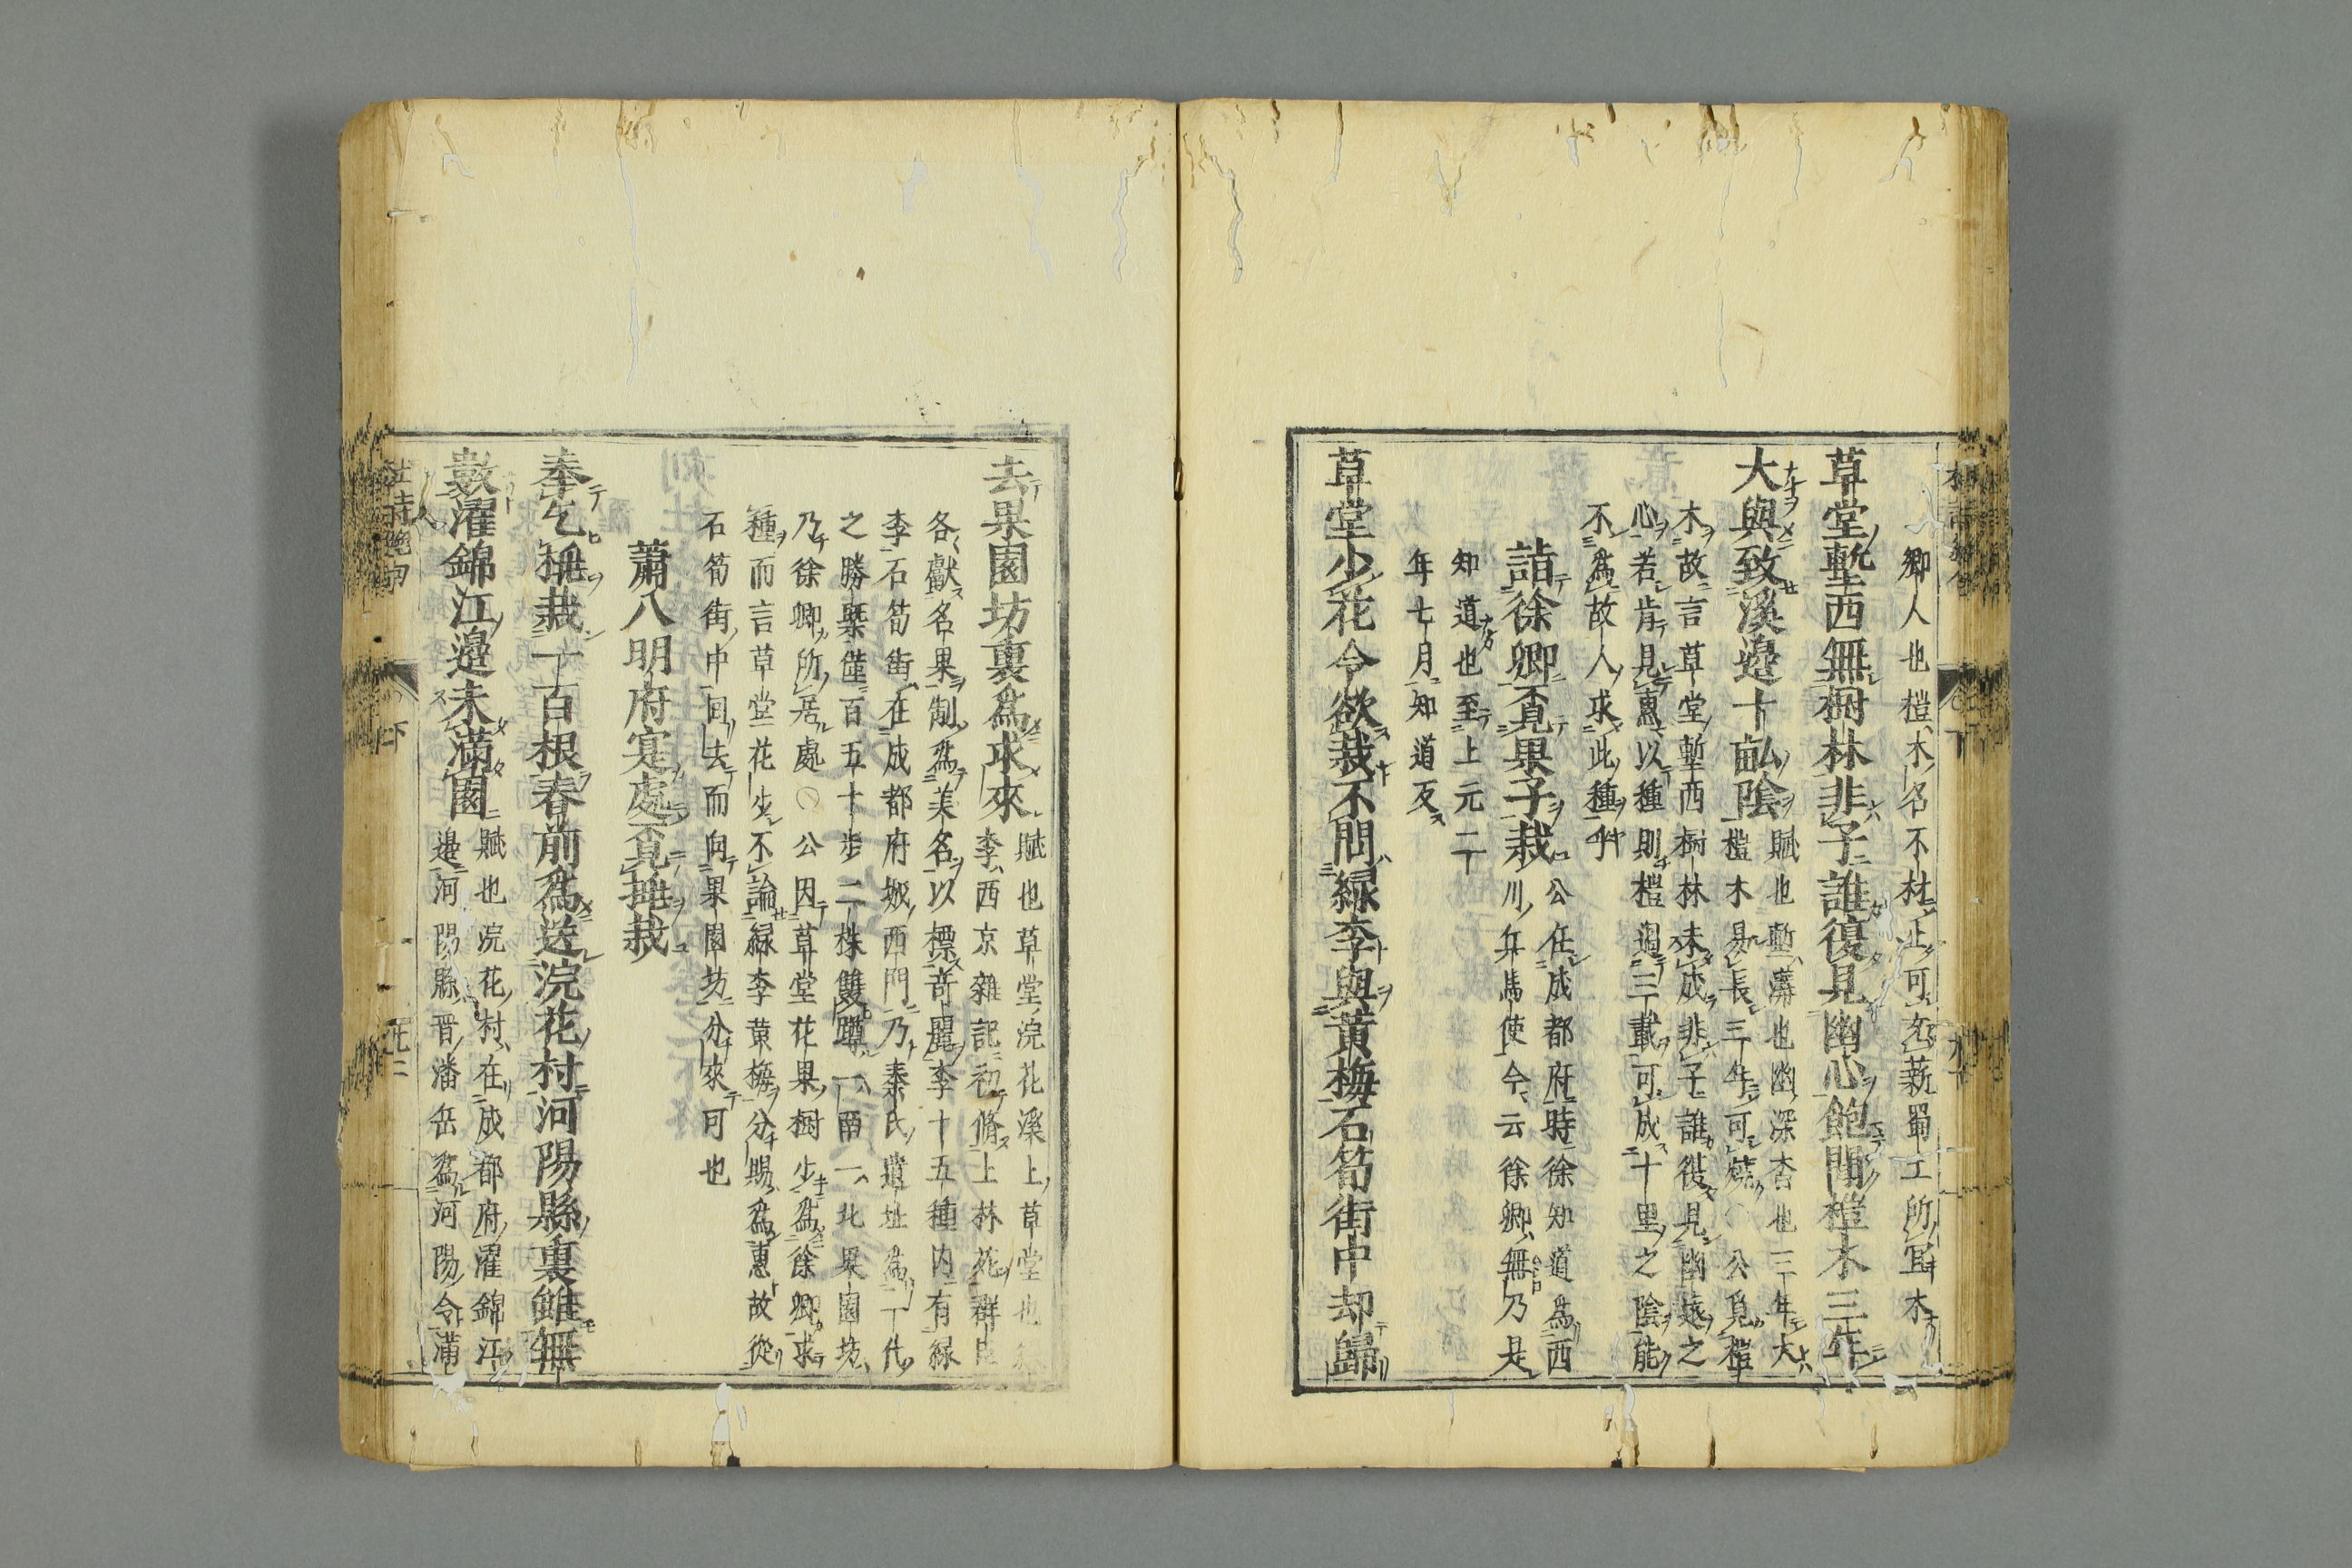 卿人也榿木名不材止可充薪蜀工所冝木
草堂塹西無樹林非子誰復見幽心飽聞榿木三年
大與致溪邊十畝陰
賦也塹溝也幽深杳也三年大
榿木易長三年可燒○公覓榿
木故言草堂塹西樹林未成非子誰復見幽邃之
心若肯見惠以種則榿過三載可成十里之陰能
不爲故人求此種乎
詣徐卿覓果子栽
公在成都府時徐知道爲西
川兵馬使今云徐卿無乃是
知道也至上元二
年七月知道反
草堂少花今欲栽不問綠李與黃梅石筍街中却歸
去果園坊裏爲求來
賦也草堂浣花溪上草堂也
李西京雜記初脩上林苑群臣
各獻名果制爲美名以標奇麗李十五種内有綠
李石筍街在成都府城西門乃秦氏遺址爲一代
之勝槩僅百五十步二株雙蹲一南一北果園坊
乃徐卿所居處○公因草堂花果樹少爲徐卿求
種而言草堂花少不論綠李黃梅分賜爲惠故從
石筍街中回去而向果園坊分來可也
蕭八明府寔處覓桃栽
奉乞桃栽一百根春前爲送浣花村河陽縣裏雖無
數濯錦江邊未滿園
賦也浣花村在成都府濯錦江
邊河陽縣晋潘岳爲河陽令滿
杜詩絶句
下